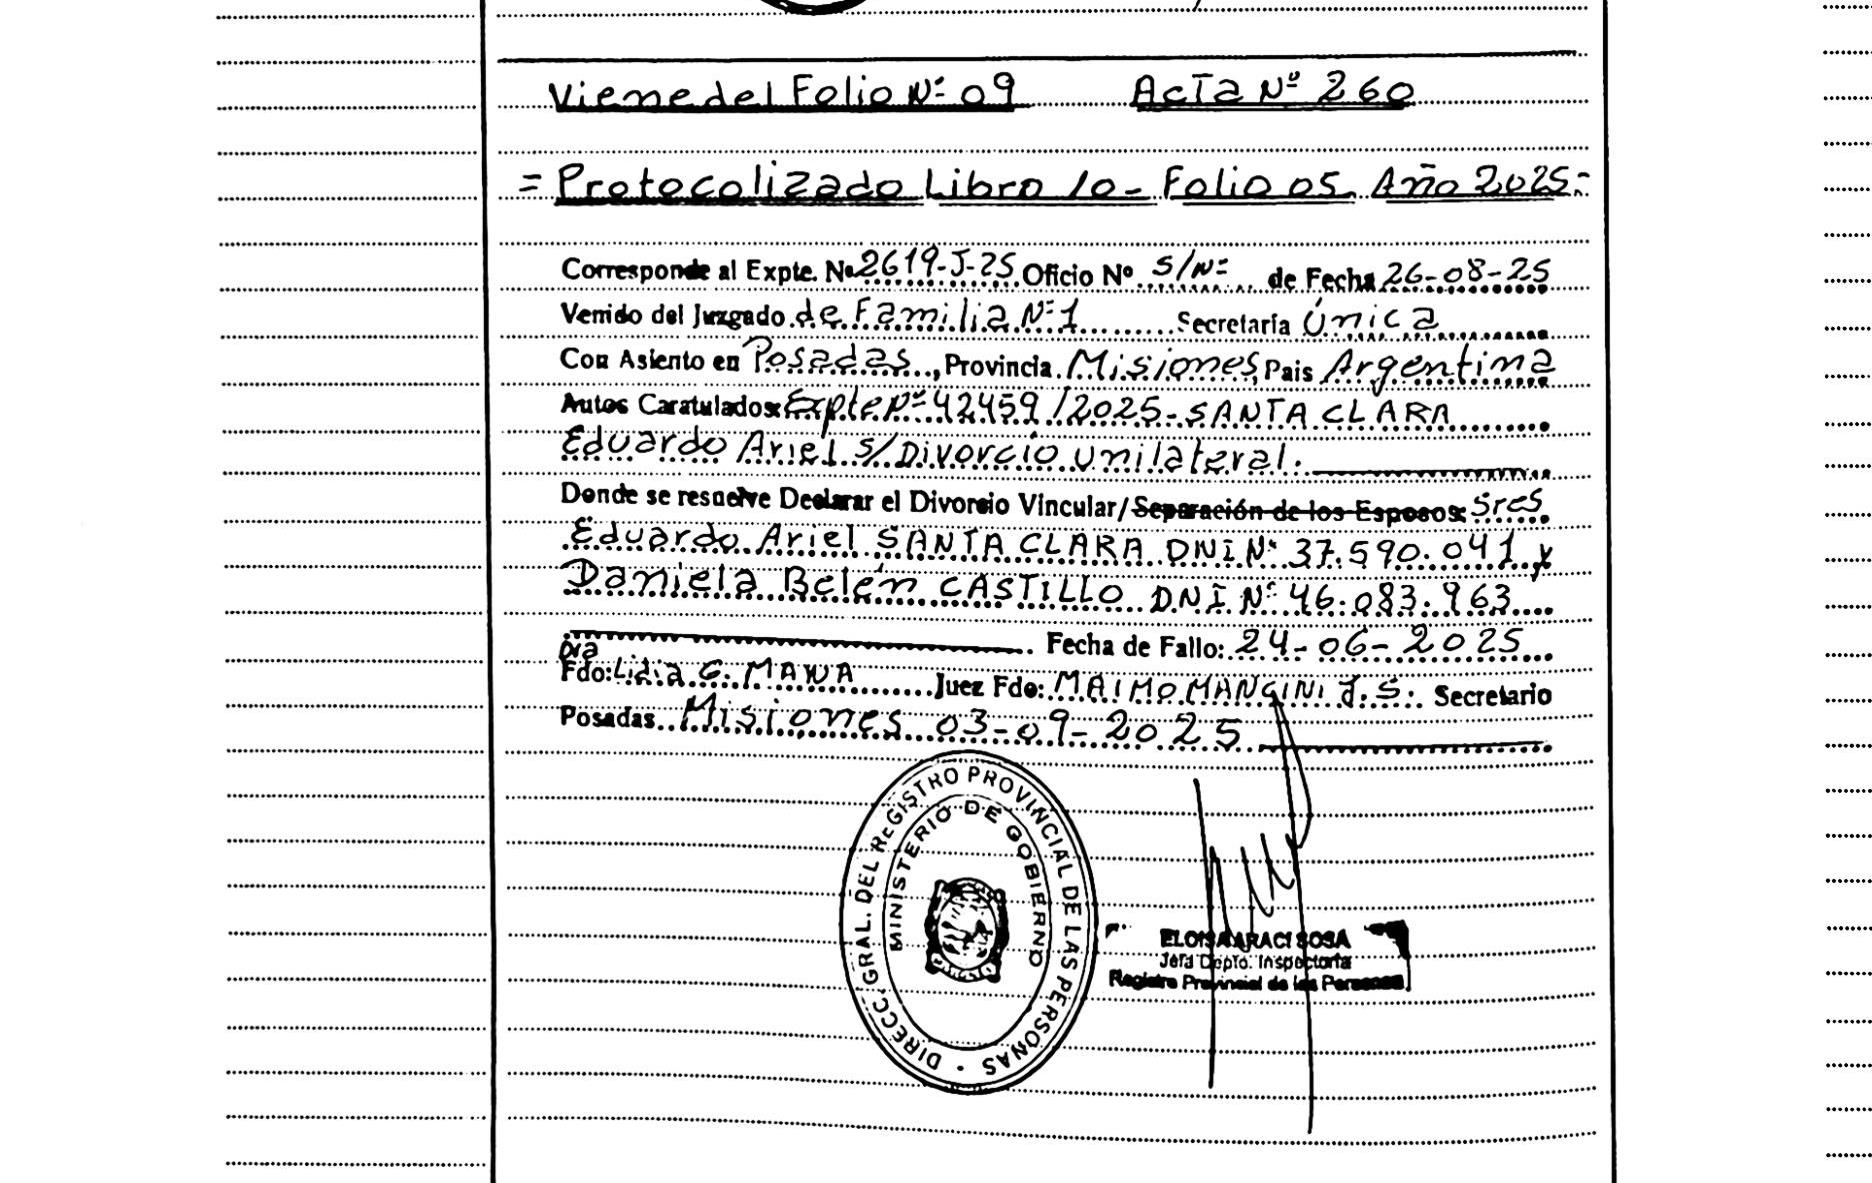 Viene del Folio Nº 09 Acta Nº 260
= Protocolizado Libro 10 - Folio 05 Año 2025 =
Corresponde al Expte. Nº 2619-J-25 Oficio Nº S/Nº de Fecha 26-08-25
Venido del Juzgado de Familia Nº 1 Secretaría Única
Con Asiento en Posadas, Provincia Misiones, Pais Argentina
Autos Caratulados: Expte Nº 42459/2025 - SANTA CLARA
Eduardo Ariel s/Divorcio unilateral.
Donde se resuelve Declarar el Divorcio Vincular/Separación de los Esposos: Sres
Eduardo Ariel SANTA CLARA DNI Nº 37.590.041 y
Daniela Belén CASTILLO DNI Nº 46.083.963
Fecha de Fallo: 24-06-2025
Dra
Fdo: Lidia G. Juez Fdo: MAIMO MANCINI J.S. Secretario
Posadas Misiones 03-09-2025
DIRECC. GRAL. DEL REGISTRO PROVINCIAL DE LAS PERSONAS
MINISTERIO DE GOBIERNO
ELOISA ARACI SOSA
Jefa Depto. Inspectoría
Registro Provincial de las Personas